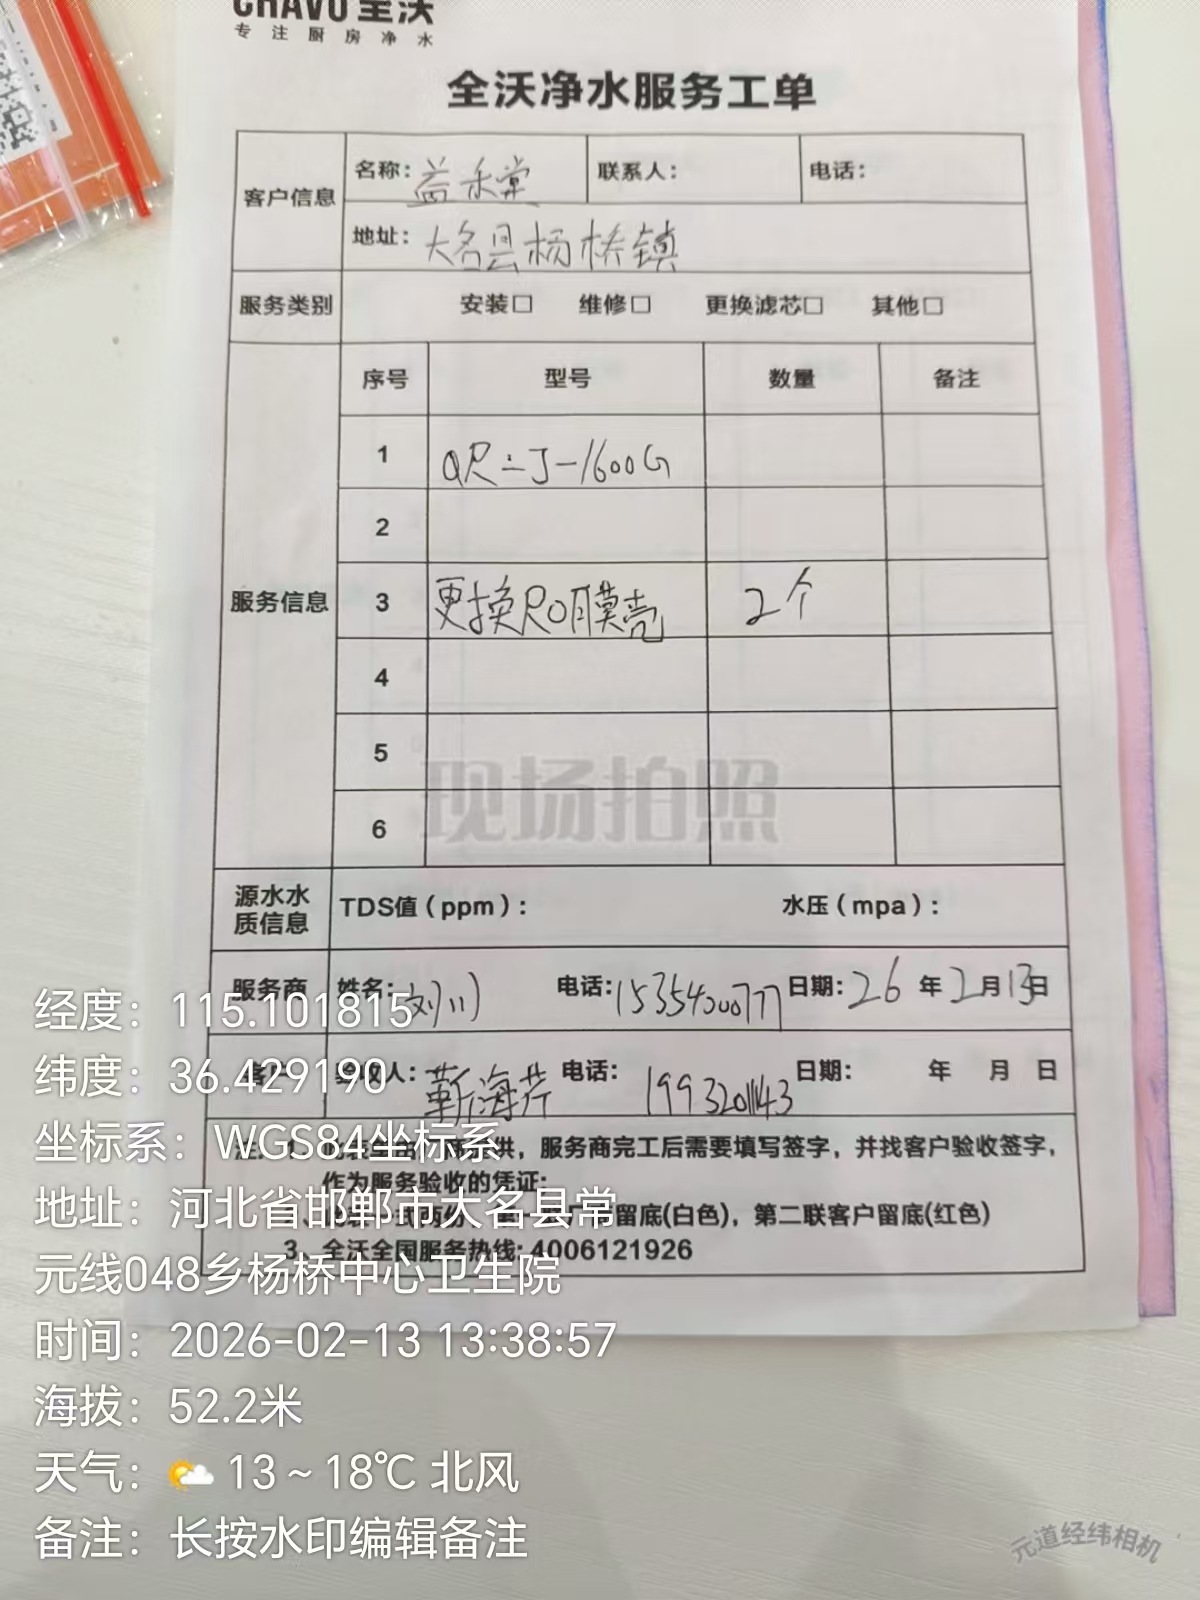 CHAVO 全沃
专注厨房净水
全沃净水服务工单
客户信息 名称：益禾堂 联系人： 电话：
地址：大名县杨桥镇
服务类别 安装□ 维修□ 更换滤芯□ 其他□
服务信息 序号 型号 数量 备注
1 QR-J-1600G
2
3 更换RO膜壳 2个
4
5
6
现场拍照
源水水质信息 TDS值（ppm）： 水压（mpa）：
服务商 姓名：刘川 电话：15354000777 日期：26年2月13日
客户 验收人：靳海芹 电话：19932011143 日期： 年 月 日
服务商完工后需要填写签字，并找客户验收签字，
作为服务验收的凭证；
留底(白色)，第二联客户留底(红色)
3、全沃全国服务热线：4006121926
经度：115.101815
纬度：36.429190
坐标系：WGS84坐标系
地址：河北省邯郸市大名县常
元线048乡杨桥中心卫生院
时间：2026-02-13 13:38:57
海拔：52.2米
天气： 13～18℃ 北风
备注：长按水印编辑备注
元道经纬相机